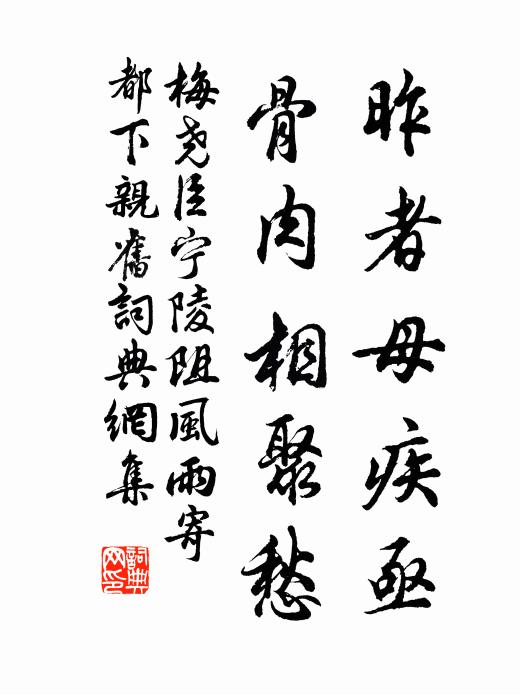 昨者母疾亟
骨肉相聚愁
梅尧臣宁陵阻風雨寄
都下親舊詞典網集
詞典
网印